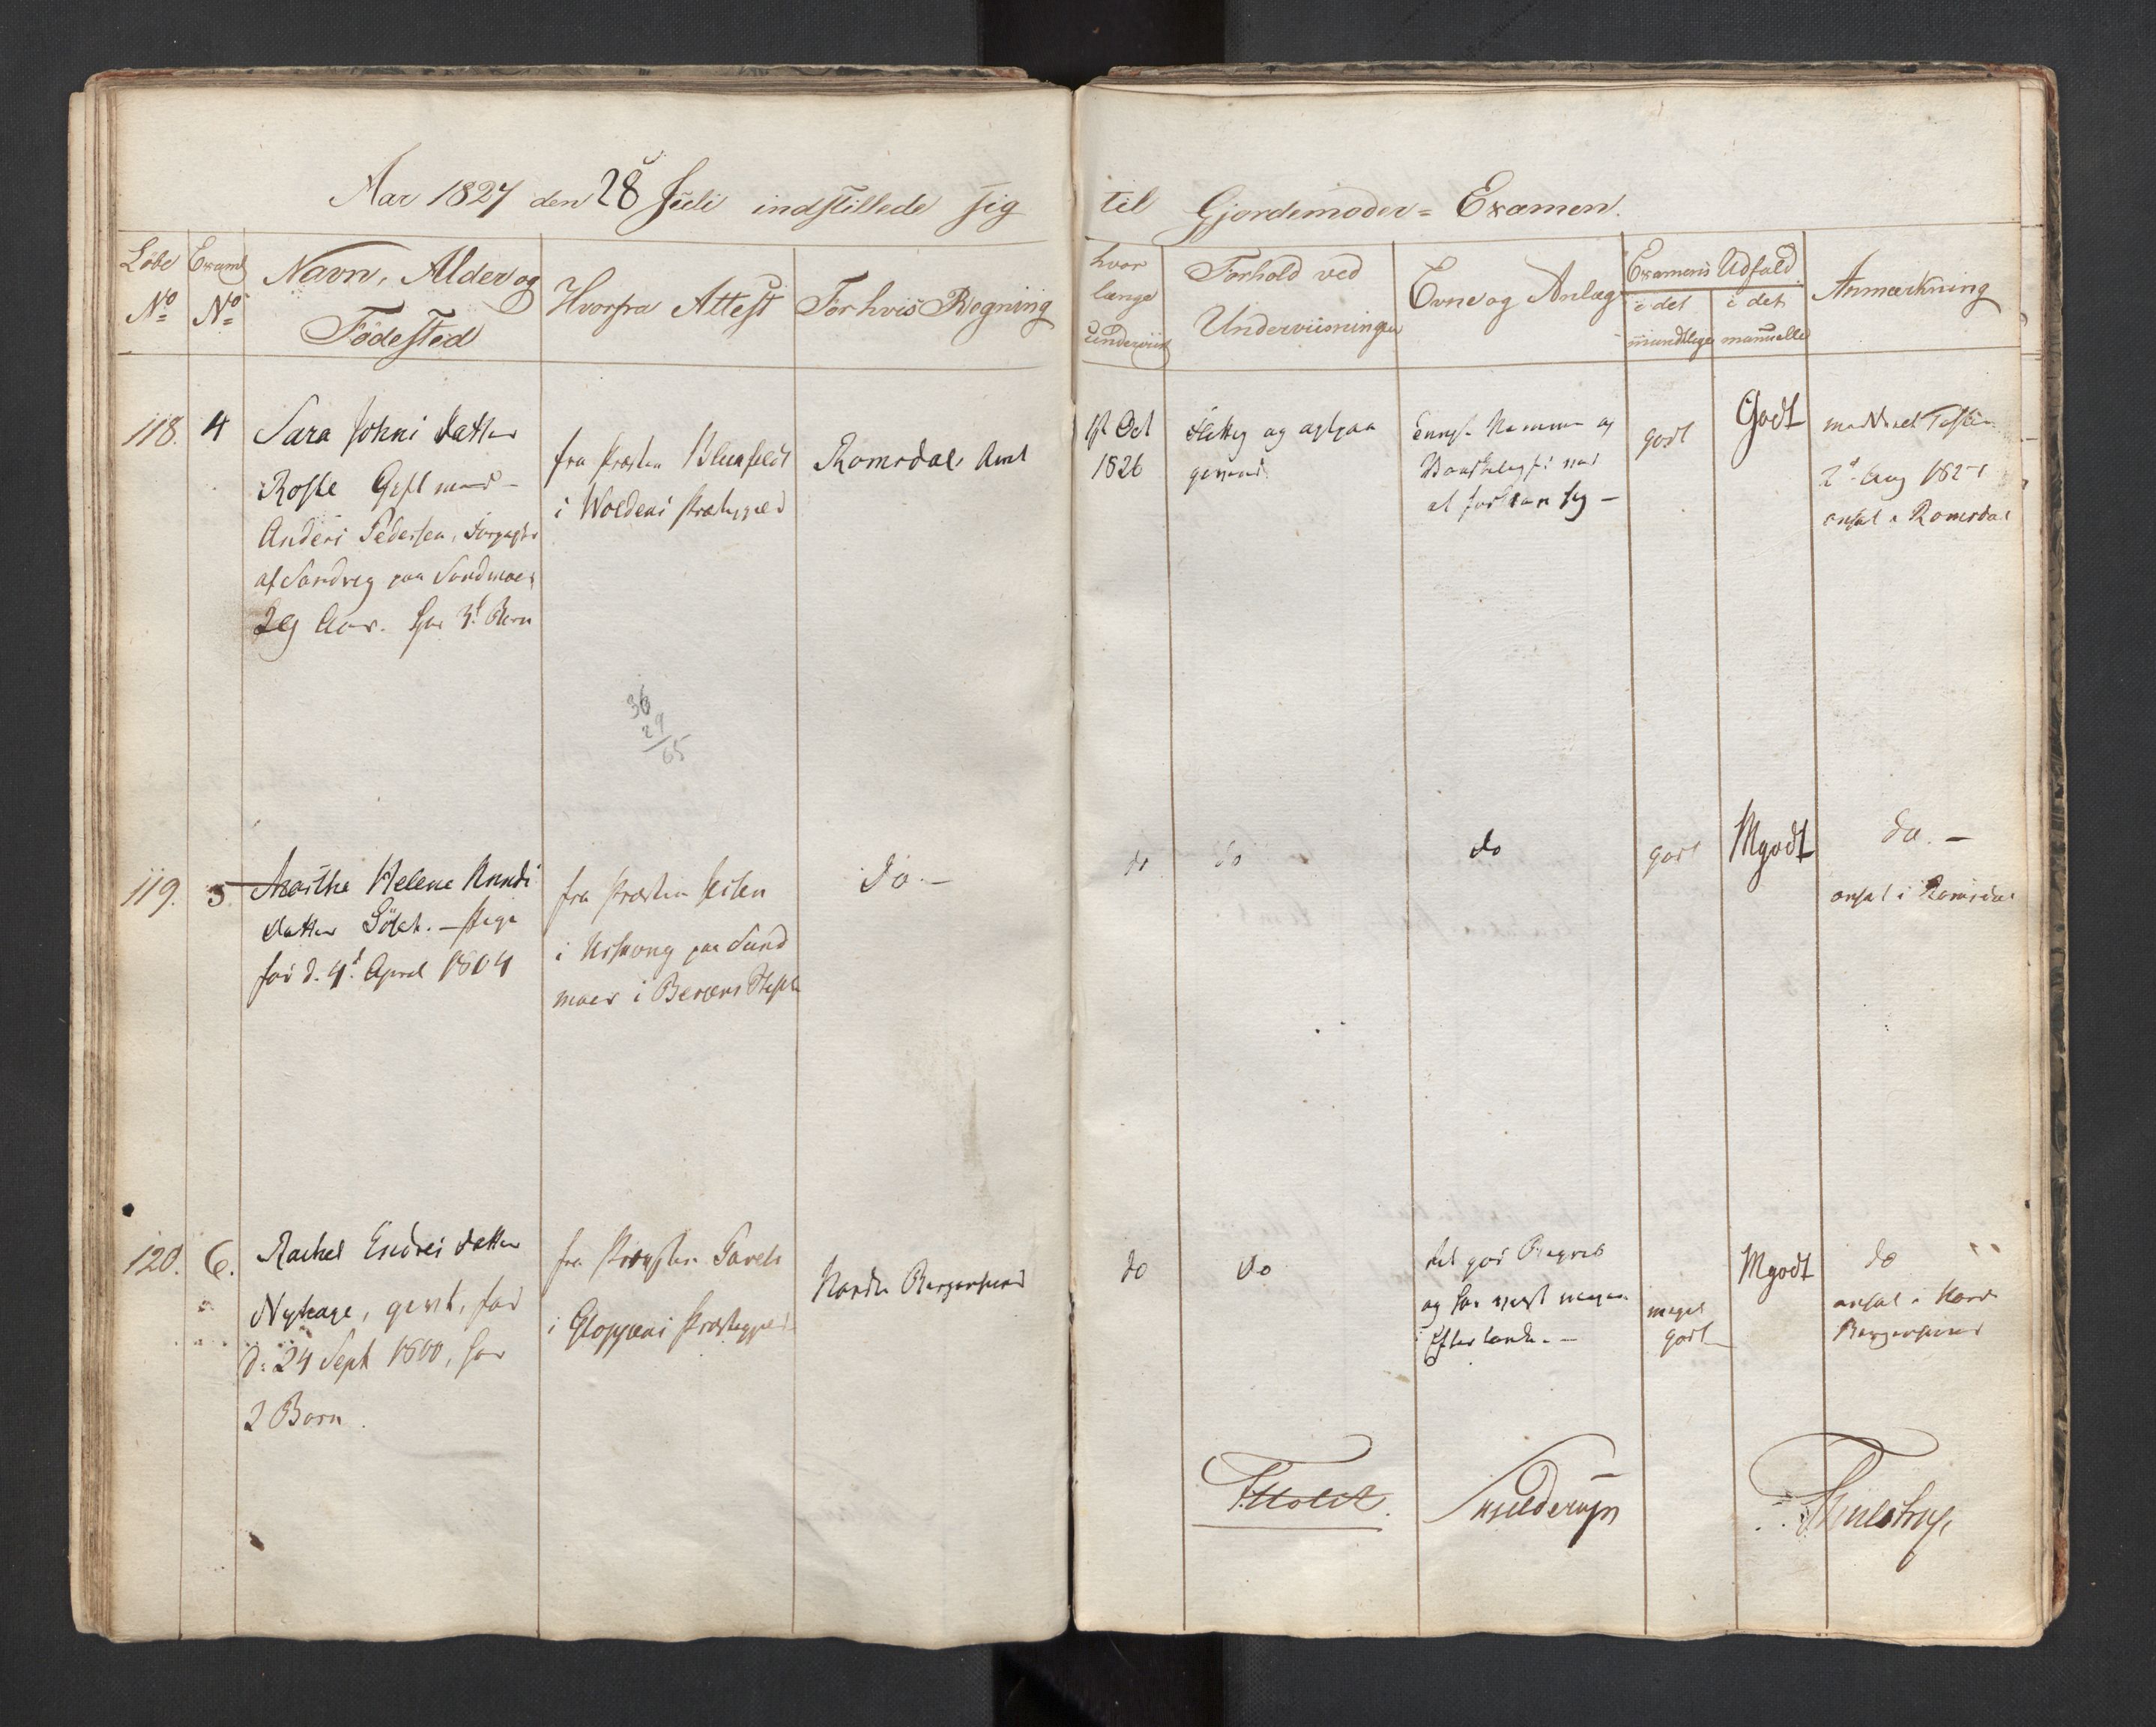 Aar 1827 den 28 Juli indstillede sig
til Gjordemoder = Examen.
Löbe No
Examl No
Navn, Alder og
Födested
Hvorfra Attest
For hvis Regning
hvor
længe
underviist
Forhold ved
Underviisningen
Evne og Anlæg
Examens Udfald
i det
mundtlige
i det
manuelle
Anmærkning
118.
4
Sara Johns datter
Gift med
Anders Pedersen,
af Sandvig paa Sundmoer
29 Aar. har 3 Børn
fra Præsten
i Woldens Præstegjeld
Romsdals Amt
Oct
1826
Flittig og agtpaa
givende
Nemme og
godt
Godt
2d Aug 182
ansat i Romsdal
36
29
65
119.
5
Helene Knuds
datter Pige
fød d. 4d April 1804
fra Præsten
i paa Sund
moer i Bergens Stift
do. —
do
do
do
godt
Mgodt
do. —
ansat i Romsdal
120.
6.
Rachel Endres datter
givt, fød
d: 24 Sept 1800, har
2 Børn.
fra Præsten
i Gloppens Præstegjeld
Nordre Bergenhuus
do
do
god Begreb
og har
Eftertanke. —
meget
godt
Mgodt
do
ansat i Nord
Bergenhuus